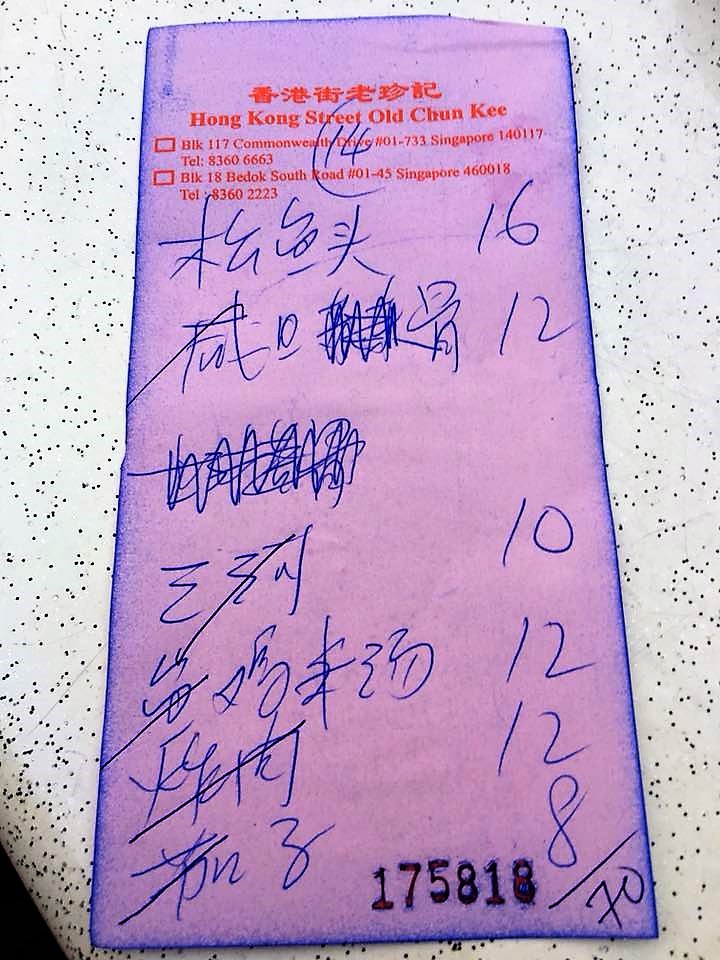 香港街老珍記
Hong Kong Street Old Chun Kee
Blk 117 Commonwealth Drive #01-733 Singapore 140117
Tel: 8360 6663
Blk 18 Bedok South Road #01-45 Singapore 460018
Tel : 8360 2223
14
松鱼头 16
咸旦 骨 12
三 10
汤 12
肉 12
茄子 8
175818
70